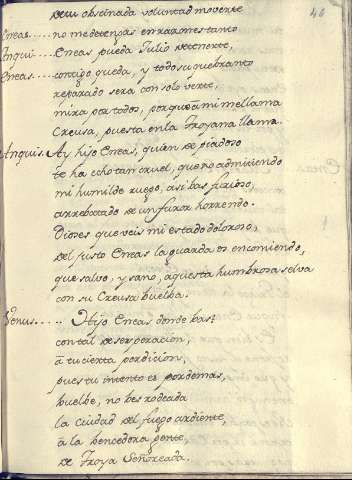 46
de tu obstinada voluntad moverte
Eneas.... no me detengas en razones tanto
Anqui.... Eneas pueda Julio detenerte,
Eneas.... contigo queda, y todo su quebranto
reparado sera con solo verte,
mira por todos, porque a mi me llama
Creusa, puesta en la Troyana llama.
Anquis. Ay hijo Eneas, quien de piadoso
te ha echo tan cruel, que no admitiendo
mi humilde ruego, asi bas furioso,
arrebatado de un furor horrendo.
Dioses que veis mi estado doloroso,
del justo Eneas la guarda os encomiendo,
que salvo, y sano, a questa humbrosa selva
con su Creusa buelba.
Venus..... .. Hijo Eneas donde bas?
con tal desesperacion,
a tu cierta perdicion,
pues tu intento es por demas,
buelbe, no bes rodeada
la ciudad del fuego ardiente,
a la bencedora gente,
de Troya Señoreada.